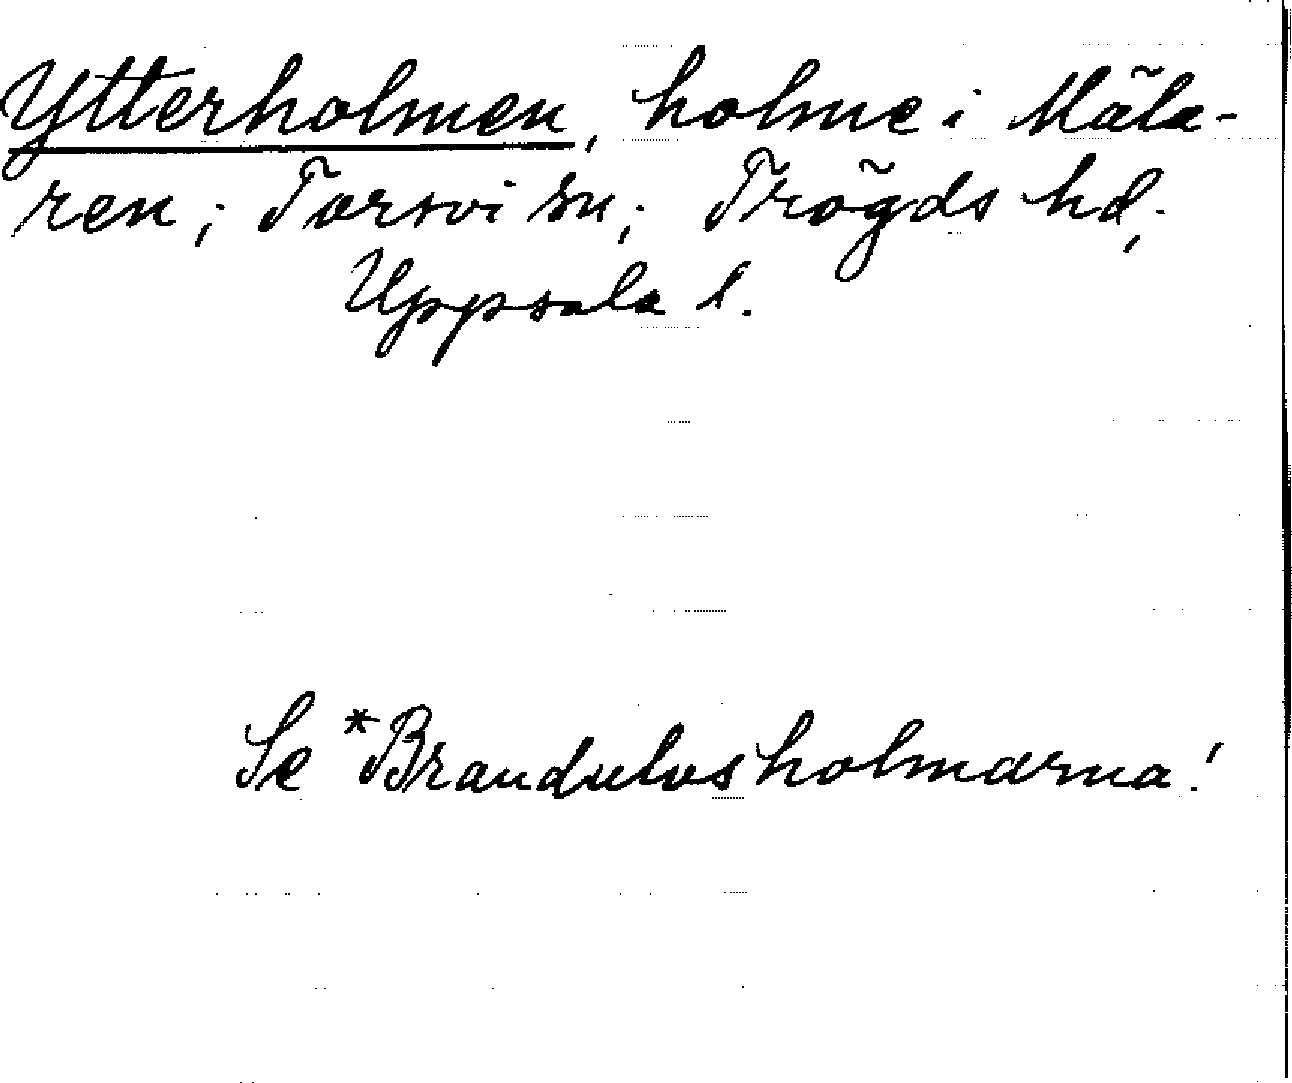 Ytterholmen, holme i Mäla-
ren; Torsvi sn; Trögds hd;
Uppsala l.
Se *Brandulvsholmarna!